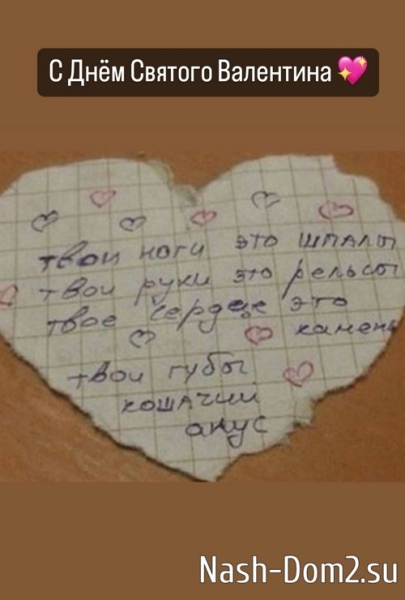 С Днём Святого Валентина 💖
твои ноги это шпалы
твои руки это рельсы
твое сердце это
камень
твои губы
кошачий
анус
Nash-Dom2.su